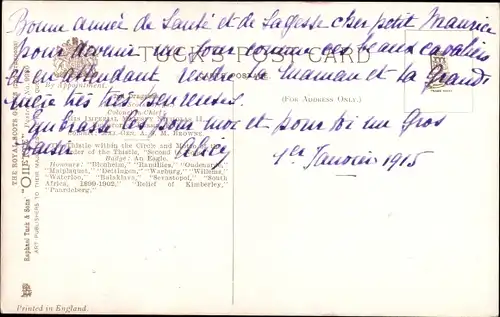 Bonne année de Santé et de Sagesse cher petit Maurice
pour devenir un jour comme ces beaux cavaliers
et en attendant rendre la Maman et la Grand
mère très très heureuses.
Embrasse les pour moi et pour toi un gros
baiser
1er Janvier 1915
TUCK'S POST CARD
CARTE POSTALE
(FOR ADDRESS ONLY.)
By Appointment.
Colonel-in-Chief:
His Imperial Majesty
II.
Colonel: Gen. A. J. M. Browne.
Thistle within the Circle and
Order of the Thistle, "Second to
Badge: An Eagle.
Honours: "Blenheim," "Ramillies," "Oudenarde,"
"Malplaquet," "Dettingen," "Warburg," "Willems,"
"Waterloo," "Balaklava," "Sevastopol," "South
Africa, 1899-1902," "Relief of Kimberley,"
"Paardeberg."
Raphael Tuck & Sons' "OILETTE"
ART PUBLISHERS TO THEIR MAJESTIES
Printed in England.